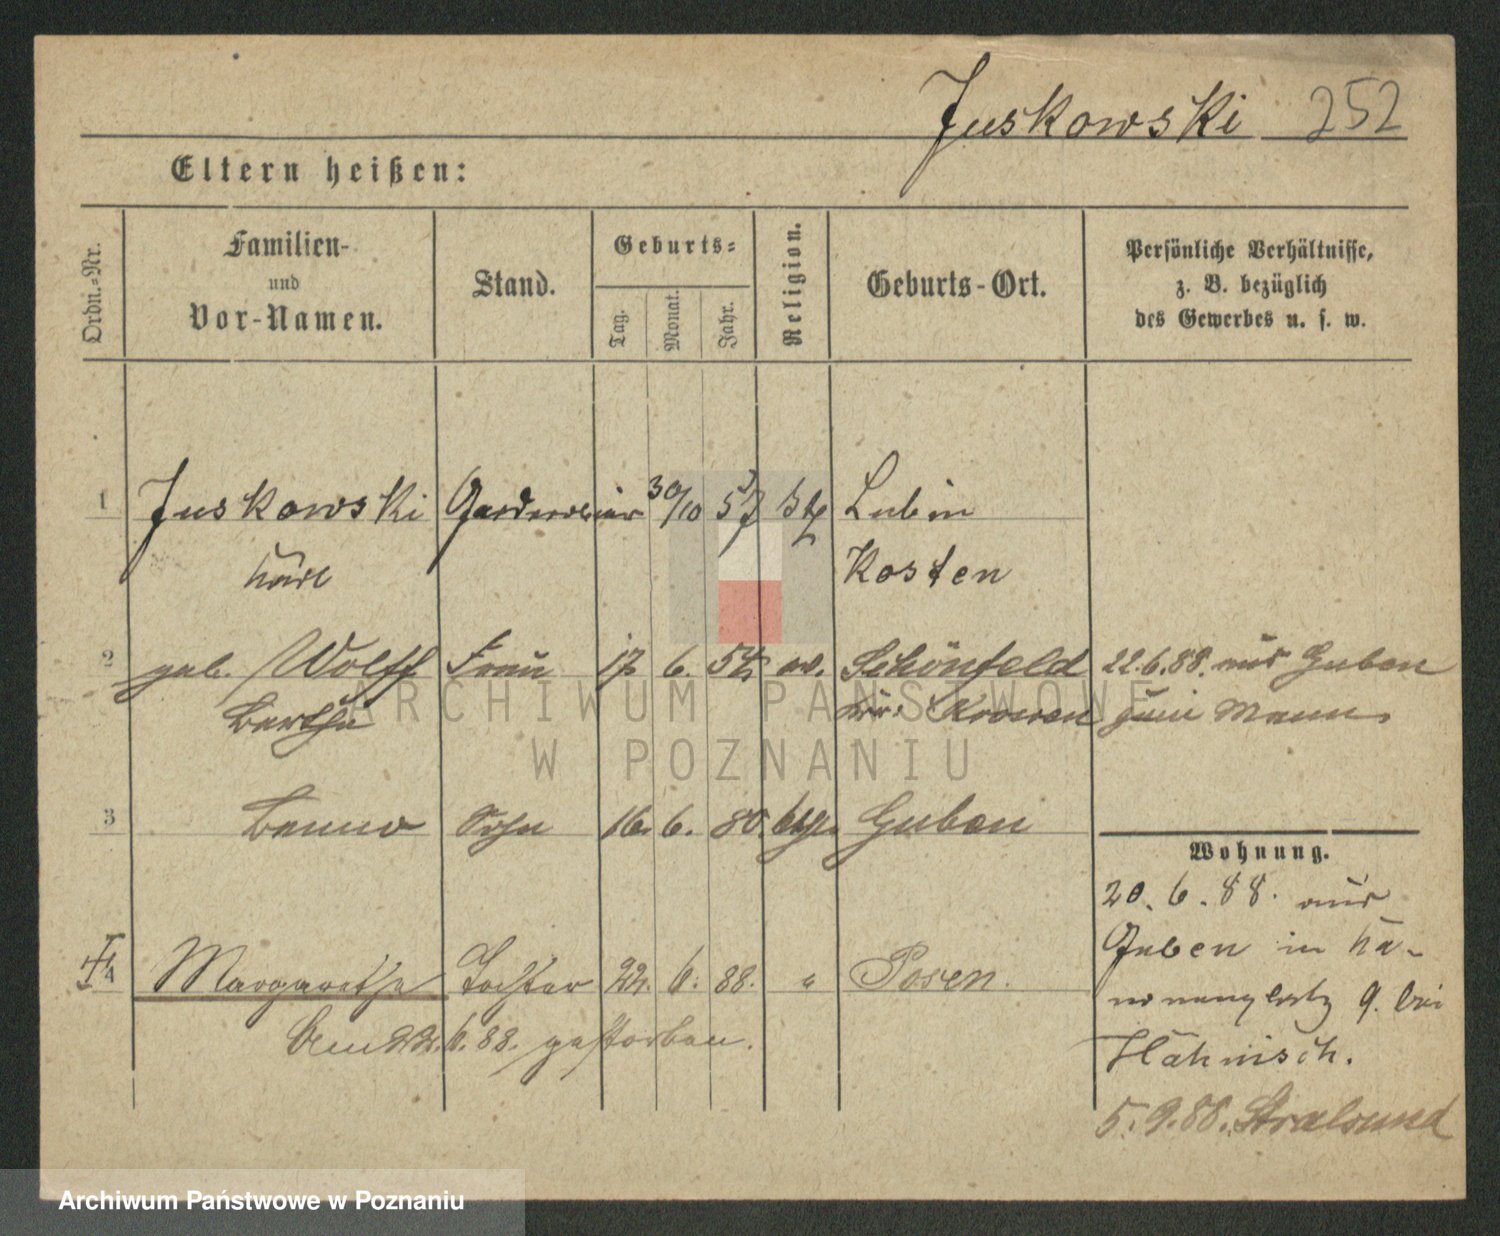 Juskowski 252
Eltern heißen:
Ordn.-Nr.
Familien-
und
Vor-Namen.
Stand.
Geburts-
Tag.
Monat.
Jahr.
Religion.
Geburts-Ort.
Persönliche Verhältnisse,
z. B. bezüglich
des Gewerbes u. s. w.
1 Juskowski 30/10 57 Lubin
Karl Kosten
2 geb. Wolff Frau 17. 6. 54 ev. Schönfeld 22.6.88. aus Guben
Bertha Krs: Krossen zum Mann
3 Benno Sohn 16. 6. 80. Guben
Wohnung.
20. 6. 88. aus
Guben in Ka-
nonenplatz 9. bei
Hähnisch.
4 Margarethe Tochter 22. 6. 88. " Posen.
Am 22. 6. 88. gestorben.
5. 9. 88. Stralsund
ARCHIWUM PAŃSTWOWE
W POZNANIU
Archiwum Państwowe w Poznaniu